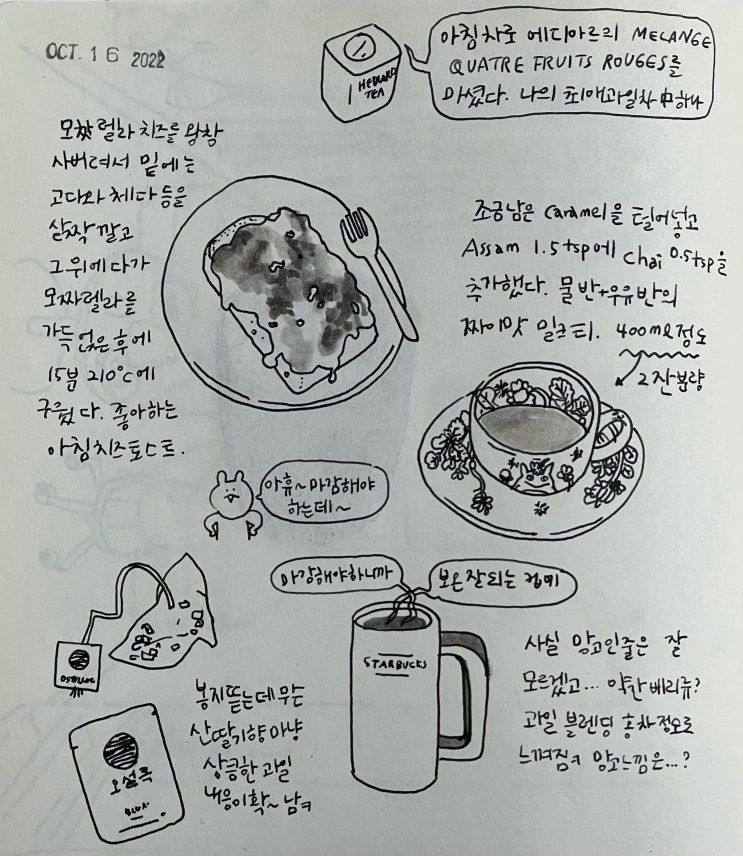 OCT. 16 2022
아침차로 에디아르의 MELANGE
QUATRE FRUITS ROUGES를
마셨다. 나의 최애과일차 中 하나
HEDIARD
TEA
모짜렐라 치즈를 왕창
사버려서 밑에는
고다와 체다 등을
살짝 깔고
그위에다가
모짜렐라를
가득 얹은 후에
15분 210°C에
구웠다. 좋아하는
아침 치즈토스트.
조금남은 Caramel을 털어넣고
Assam 1.5tsp에 Chai 0.5tsp을
추가했다. 물반+우유반의
짜이맛 밀크티. 400ml정도
2잔분량
아휴~마감해야
하는데~
마감해야하니까
보온잘되는 컵에
STARBUCKS
OSULLOC
오설록
봉지뜯는데 무슨
산딸기향 마냥
상큼한 과일
내음이 확~ 남ㅋ
사실 망고인줄은 잘
모르겠고... 약간 베리류?
과일 블렌딩 홍차정도로
느껴짐ㅋ 망고느낌은...?